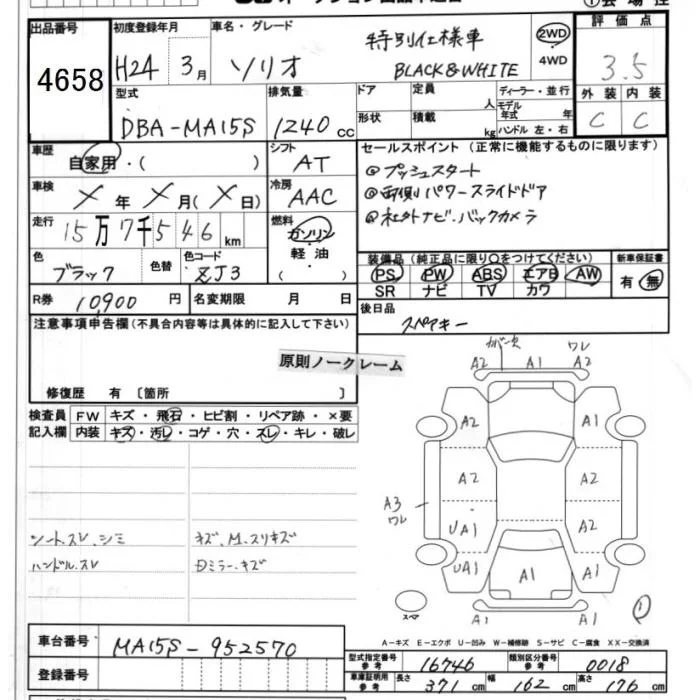 出品番号
4658
初度登録年月
H24 3月
車名・グレード
ソリオ
特別仕様車
BLACK&WHITE
2WD
4WD
評価点
3.5
外装 内装
C C
型式
DBA-MA15S
排気量
1240 cc
ドア
形状
定員 人
積載 kg
ディーラー・並行
モデル年式 年
ハンドル 左・右
車歴
自家用・( )
シフト
AT
車検
X 年 X 月(X 日)
冷房
AAC
走行
15万7千546km
燃料
ガソリン
・軽油
・( )
色
ブラック
色替
色コード
ZJ3
R券 10900 円
名変期限 月 日
セールスポイント(正常に機能するものに限ります)
◎プッシュスタート
◎両側パワースライドドア
◎社外ナビ.バックカメラ
装備品(純正品に限り○をつけてください)
PS PW ABS エアB AW
SR ナビ TV カワ
新車保証書
有・無
後日品
スペアキー
注意事項申告欄(不具合内容等は具体的に記入して下さい)
原則ノークレーム
修復歴 有〔箇所 〕
検査員記入欄
FW キズ・飛石・ヒビ割・リペア跡・×要
内装 キズ・汚レ・コゲ・穴・スレ・キレ・破レ
シート.スレ.シミ
ハンドル.スレ
キズ.M.スリキズ
Dミラー.キズ
ワレ
A2 A1 A2
A2 A1
A2 A2
A3
ワレ
UA1 A2
UA1 A1 A1
スペア
A1 A1
1
A-キズ E-エクボ U-凹み W-補修跡 S-サビ C-腐食 XX-交換済
車台番号
MA15S-952570
登録番号
型式指定番号参考 16746
類別区分番号参考 0018
車庫証明用参考 長さ 371cm 幅 162cm 高さ 176cm